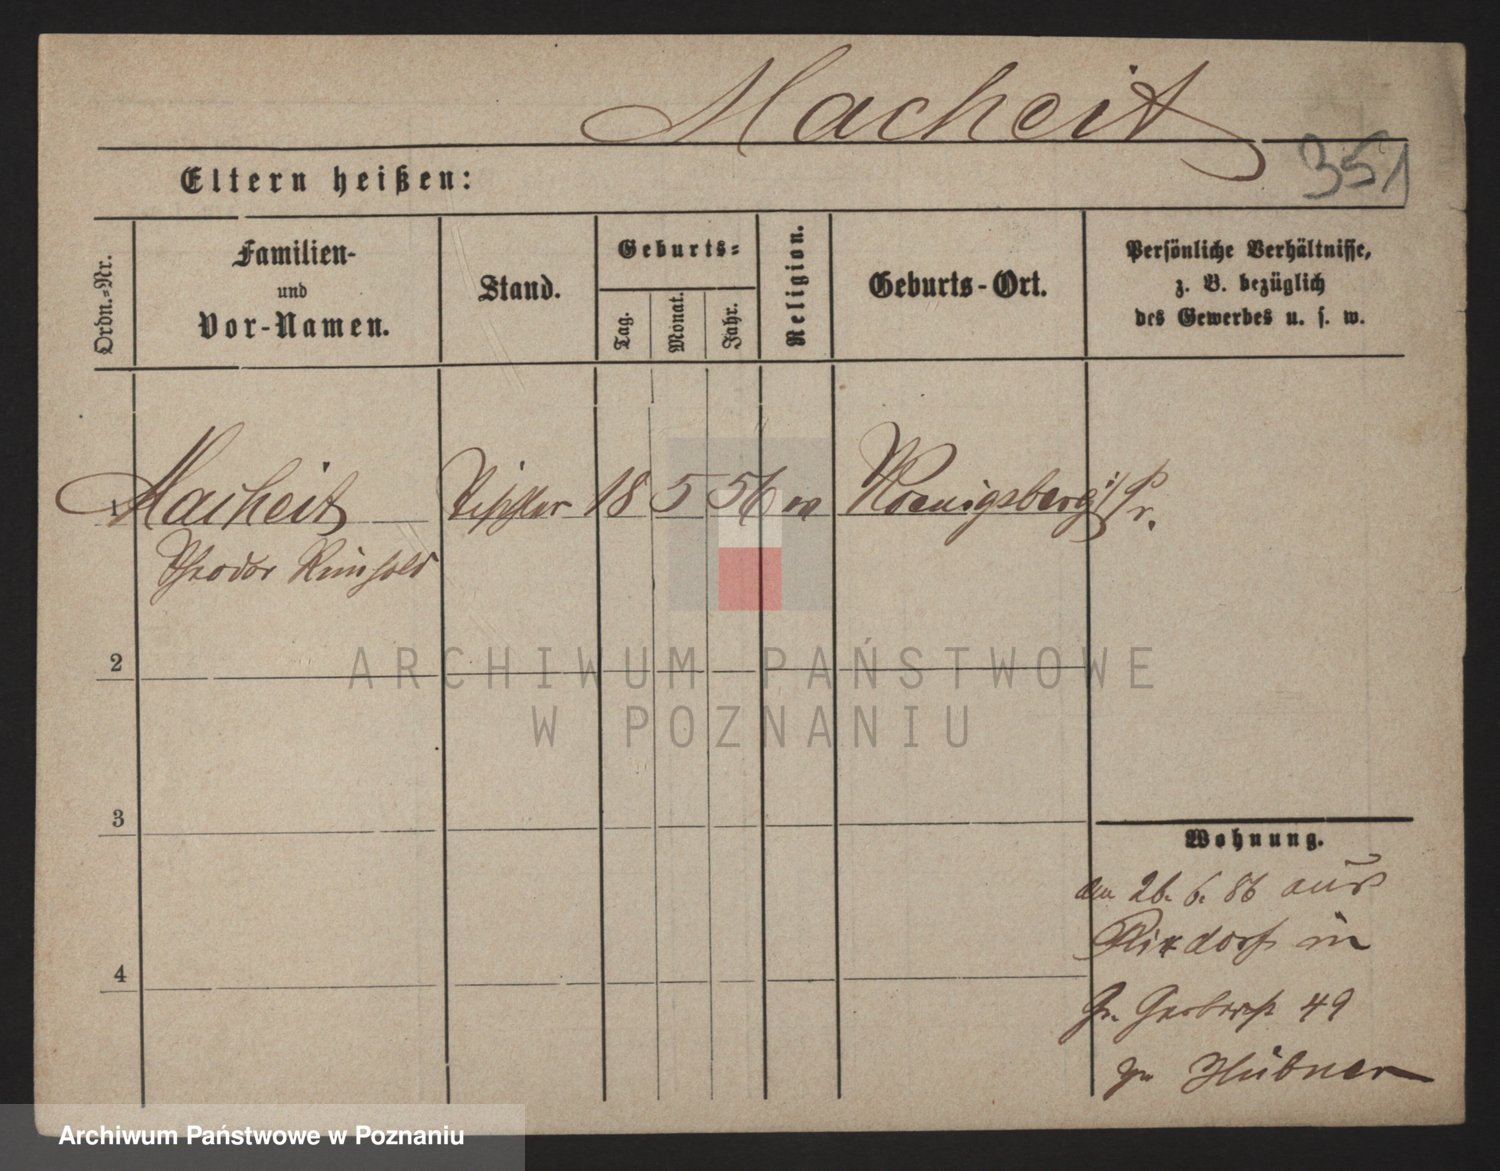 Macheit
351
Eltern heißen:
Ordn.-Nr.
Familien-
und
Vor-Namen.
Stand.
Geburts-
Tag.
Monat.
Jahr.
Religion.
Geburts-Ort.
Persönliche Verhältnisse,
z. B. bezüglich
des Gewerbes u. s. w.
1 Macheit Tischler 18 5 56 ev Koenigsberg i/Pr.
Theodor Reinhold
2
ARCHIWUM PAŃSTWOWE
W POZNANIU
3
Wohnung.
den 26. 6. 86 aus
Rixdorf in
4
Gr. Gerberst 49
Hübner
Archiwum Państwowe w Poznaniu